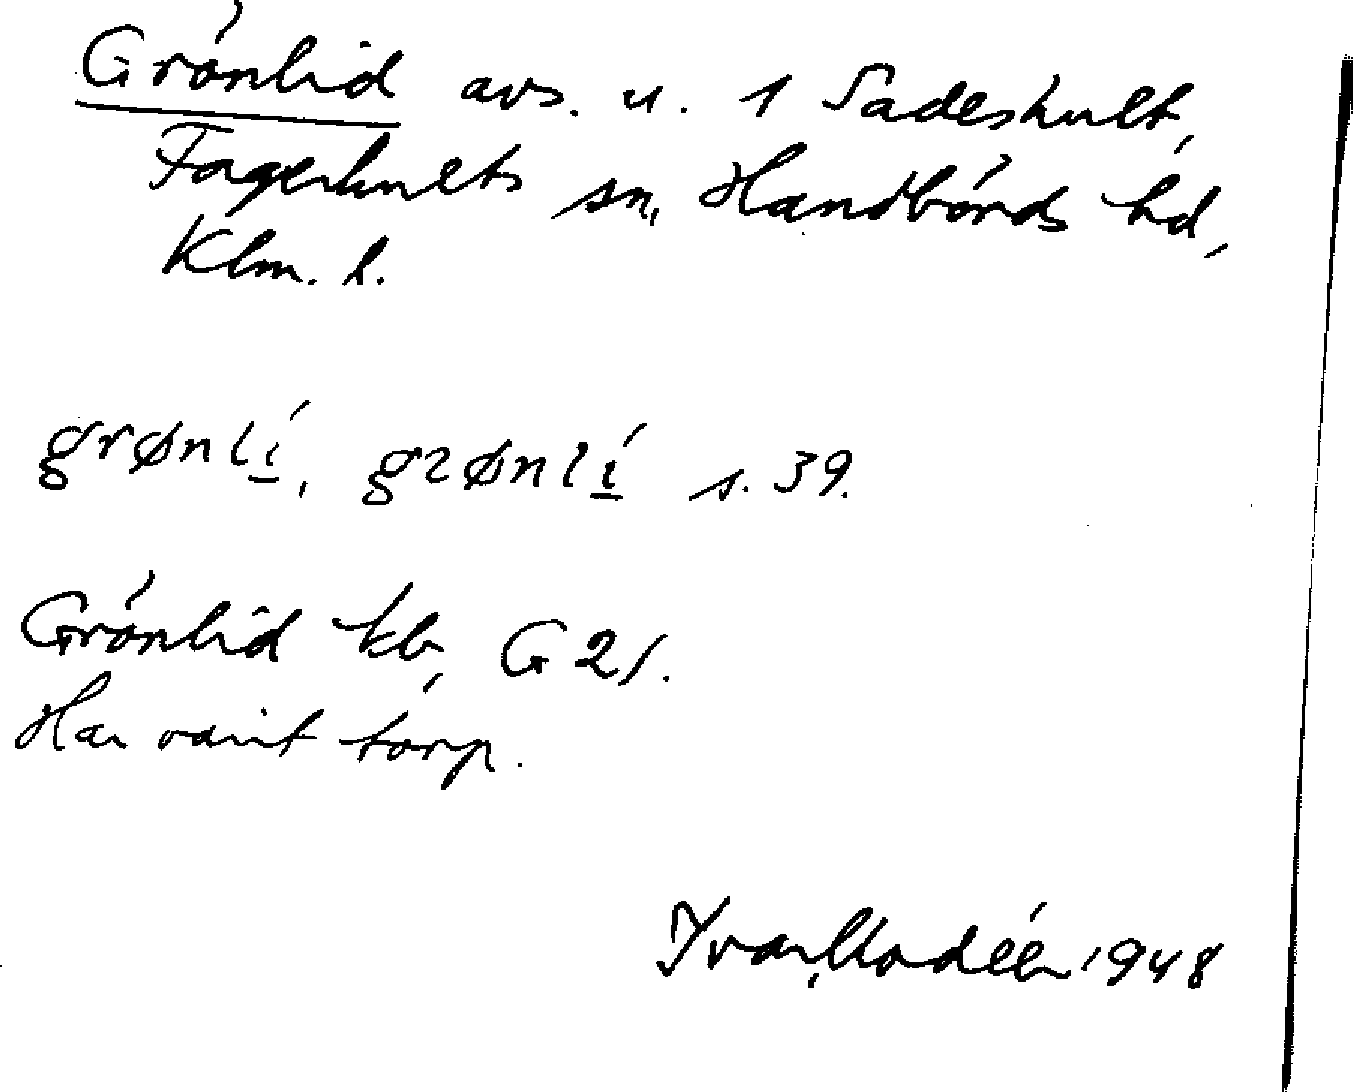 Grönlid avs. u. 1 Sadeshult,
Fagerhults sn, Handbörds hd,
Klm. l.
grønlí, gɀønlí s. 39.
Grönlid kb, G 21.
Har varit torp.
Ivar Modéer 1948